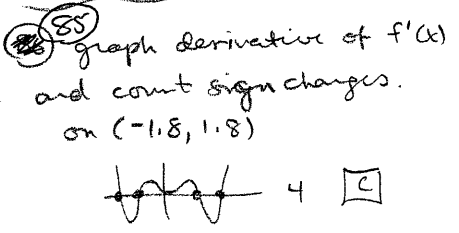 85
graph derivative of f'(x)
and count sign changes.
on (-1.8, 1.8)
4 C